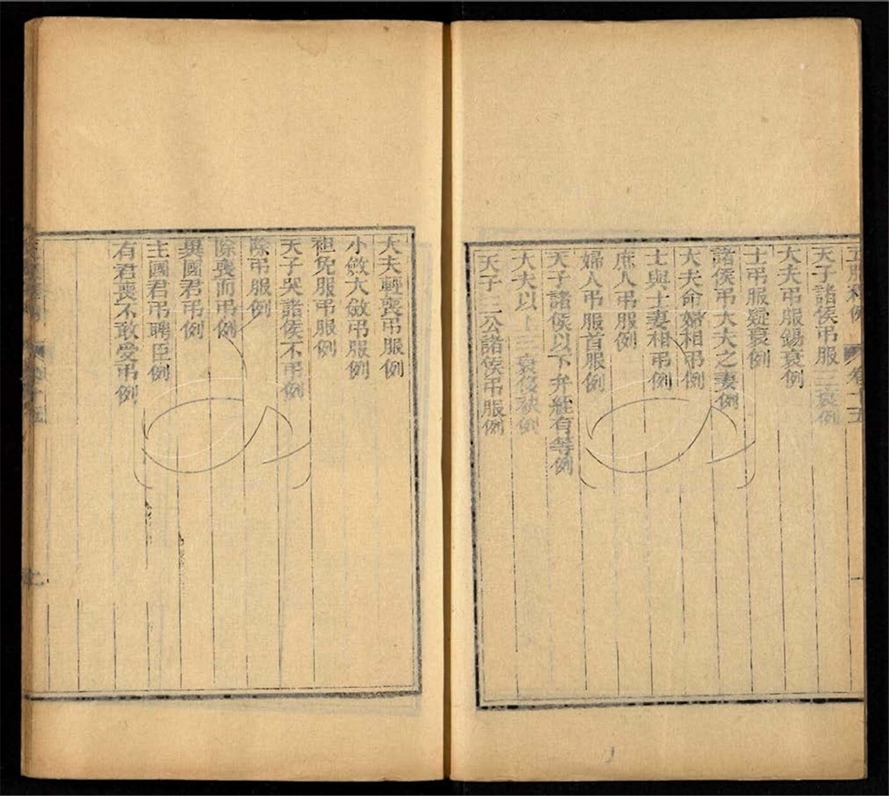 五服釋例 卷十五
天子諸侯弔服三衰例
大夫弔服錫衰例
士弔服疑衰例
諸侯弔大夫之妻例
大夫命婦相弔例
士與士妻相弔例
庶人弔服例
婦人弔服首服例
天子諸侯以下弁絰有等例
大夫以上三衰侈袂例
天子三公諸侯弔服例
大夫輕喪弔服例
小斂大斂弔服例
袒免服弔服例
天子哭諸侯不弔例
除弔服例
除喪而弔例
異國君弔例
主國君弔聘臣例
有君喪不敢受弔例